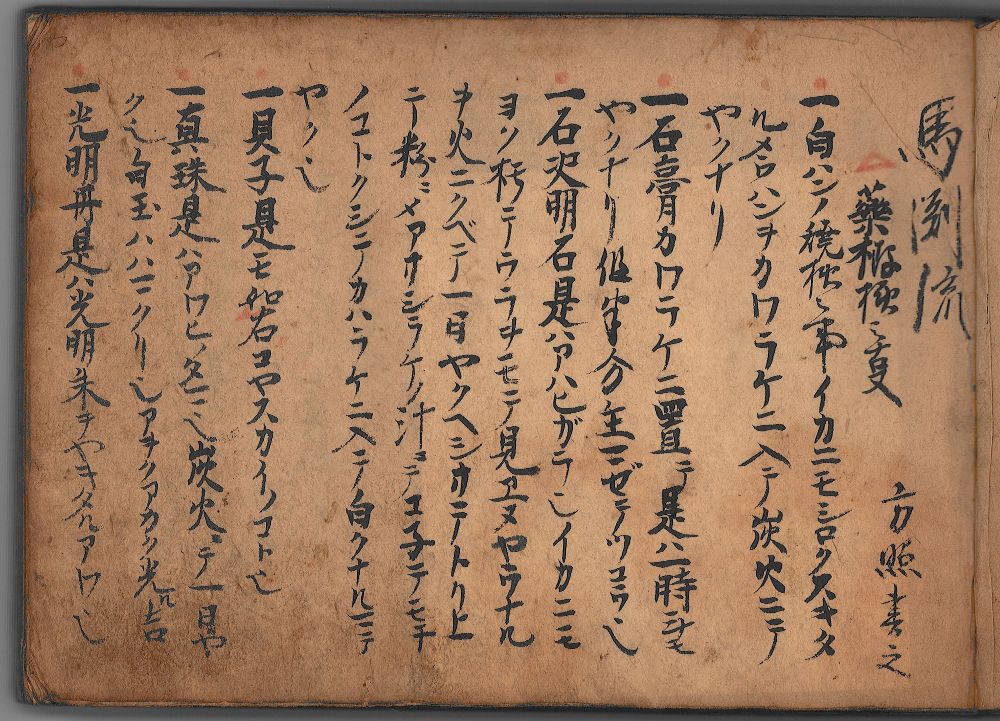 馬渕流
薬極極之変
方照書之
一白ハンノ焼極之事イカニモシロクスキタ
ル名ハンヲカワラケニ入テ炭火ニテ
ヤクナリ
一石膏月カワラケニ置テ是ハ一時ホトモ
ヤクナリ但半分主ニゼニノツコウ也
一石决明石是ハアハヒガラ也イカニモ
ヨソ持テウラヲモテノ見エヌヤウナル
ヲ火ニクベテ一日ヤクヘシサテトリ上
テ粉ニメアサシラケノ汁ニテコ子テモチ
ノコトクシテカハラケニ入テ白クナルニテ
ヤク也
一貝子是モ如右コヤスカイノコト也
一真珠是ハアワヒノタマ也炭火ニテ一日ヤ
ク也白玉ハハマクリ也アヲクアカク光ル吉
一光明丹是ハ光明朱ヲヤキタルアワ也